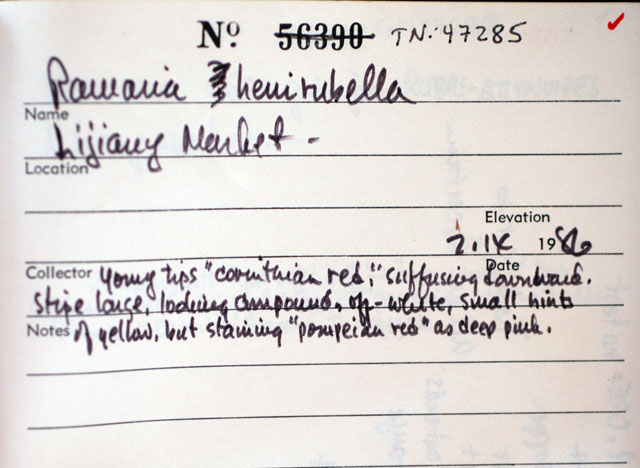 No 56390 TN: 47285
Ramaria henirubella
Name
Lijiang Market -
Location
Elevation
7.IX 1986
Collector young tips "corinthian red", suffusing downward. Date
stipe large, looking compound, off-white, small hints
Notes of yellow, but staining "pompeian red" as deep pink.